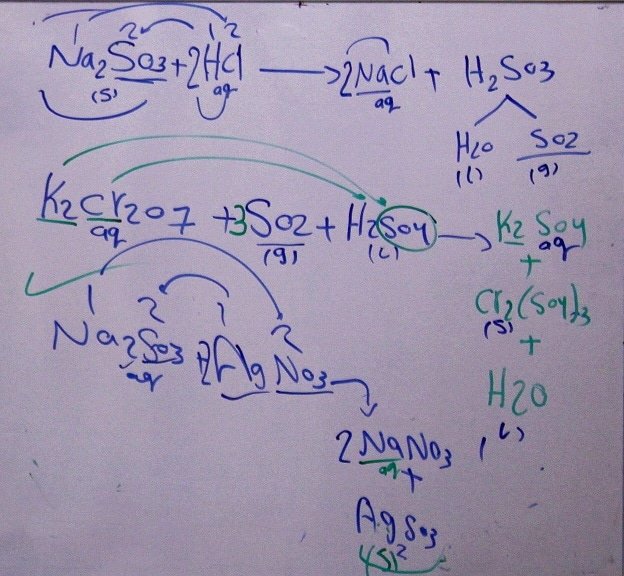 1 2 1 2
Na2SO3 + 2HCl → 2NaCl + H2SO3
(s) aq aq
H2O SO2
(l) (g)
K2Cr2O7 + 3SO2 + H2SO4 → K2SO4
aq (g) (l) aq
+
Cr2(SO4)3
(s)
+
H2O
(l)
1 2 1 2
Na2SO3 + 2AgNO3 →
aq
2NaNO3
aq +
AgSO3
(s) 2